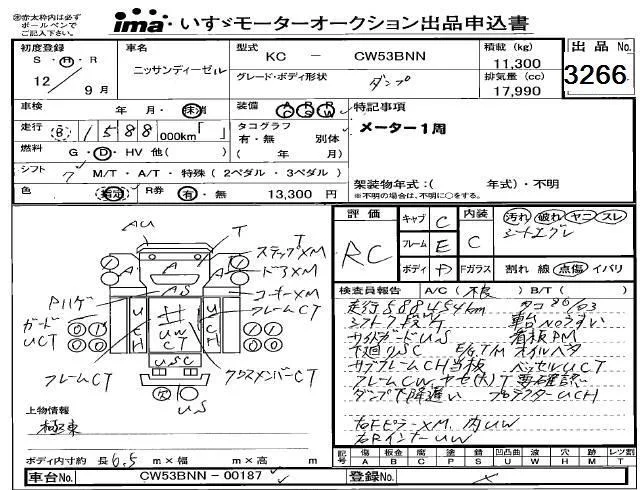 ※赤太枠内は必ず
ボールペンで
ご記入下さい。
ima いすゞモーターオークション出品申込書
初度登録
S・H・R
12年 9月
車名
ニッサンディーゼル
型式
KC － CW53BNN
グレード・ボディ形状
ダンプ
積載 (kg)
11,300
排気量 (cc)
17,990
出品 No.
3266
車検 年・月・抹消
装備 A/C P/S P/W
特記事項
メーター1周
走行 1588 000km「 」
タコグラフ
有・無 別体
( 年 月)
燃料 G・D・HV 他( )
シフト 7 M/T・A/T・特殊 ( 2ペダル・3ペダル )
色 R券 有・無 13,300 円
架装物年式:( 年式)・不明
*不明の場合は、不明に○をする。
評価
RC
キャブ C
フレーム E
ボディ
内装 C
汚れ 破れ ヤニ スレ
シートエグレ
Fガラス 割れ 線 点傷 イバリ
検査員報告 A/C( 不良 ) B/T( )
走行588454km
シフト
車台Noうすい
サイドガードUS
看板PM
下廻りSC E/G T/M オイル
サブフレームCH当板
ベッセルUCT
フレームCW 要確認
ダンプ下降遅い
プロテクターUCH
右FピラーXM 内UW
右RインナーUW
AU
T
T
ステップXM
ドアXM
コーナーXM
フレームCT
Pハゲ
ガード
UCT
A
A
A
AS
UCH
UW
CT
UCH
USC
フレームCT
クロスメンバーCT
US
上物情報
極東
ボディ内寸約 長 6.5 m×幅 m×高 m
記号 傷 A 板金 B 腐 C 補 P 塗 T 錆 S 凹凸曲 U 波 W 穴 H 跡 M レツ割 T
車台No. CW53BNN－00187
登録No.